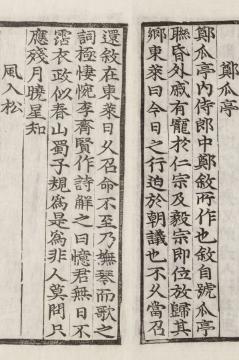 鄭瓜亭
鄭瓜亭內侍郎中鄭敘所作也敘自號瓜亭
聯昏外戚有寵於仁宗及毅宗即位放歸其
鄉東萊曰今日之行迫於朝議也不久當召
還敘在東萊日久召命不至乃撫琴而歌之
詞極悽惋李齊賢作詩解之曰憶君無日不
霑衣政似春山蜀子規爲是爲非人莫問只
應殘月曉星知
風入松